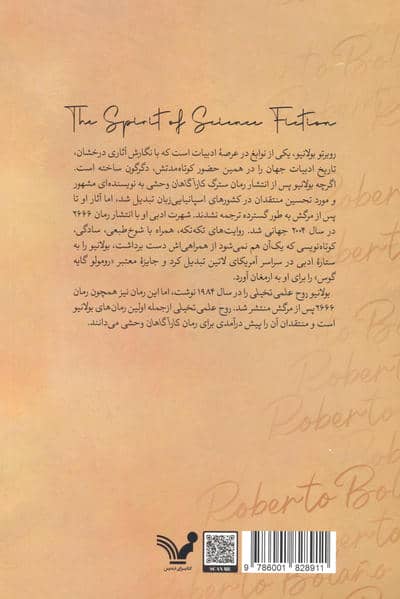 The Spirit of Science Fiction
روبرتو بولانیو، یکی از نوابغ در عرصهٔ ادبیات است که با نگارش آثاری درخشان،
تاریخ ادبیات جهان را در همین حضور کوتاه‌مدتش، دگرگون ساخته است.
اگرچه بولانیو پس از انتشار رمان سترگ کارآگاهان وحشی به نویسنده‌ای مشهور
و مورد تحسین منتقدان در کشورهای اسپانیایی‌زبان تبدیل شد، اما آثار او تا
پس از مرگش به طور گسترده ترجمه نشدند. شهرت ادبی او با انتشار رمان ۲۶۶۶
در سال ۲۰۰۴ جهانی شد. روایت‌های تکه‌تکه، همراه با شوخ‌طبعی، سادگی،
کوتاه‌نویسی که یک‌آن هم نمی‌شود از همراهی‌اش دست برداشت، بولانیو را به
ستارهٔ ادبی در سراسر آمریکای لاتین تبدیل کرد و جایزهٔ معتبر «رومولو گایه
گوس» را برای او به ارمغان آورد.
بولانیو روح علمی تخیلی را در سال ۱۹۸۴ نوشت، اما این رمان نیز همچون رمان
۲۶۶۶ پس از مرگش منتشر شد. روح علمی تخیلی ازجمله اولین رمان‌های بولانیو
است و منتقدان آن را پیش درآمدی برای رمان کارآگاهان وحشی می‌دانند.
Roberto Bolano
Roberto
Roberto
Roberto Bol
Roberto Bolano
کتابسرای تندیس
SCAN ME
9 786001 828911